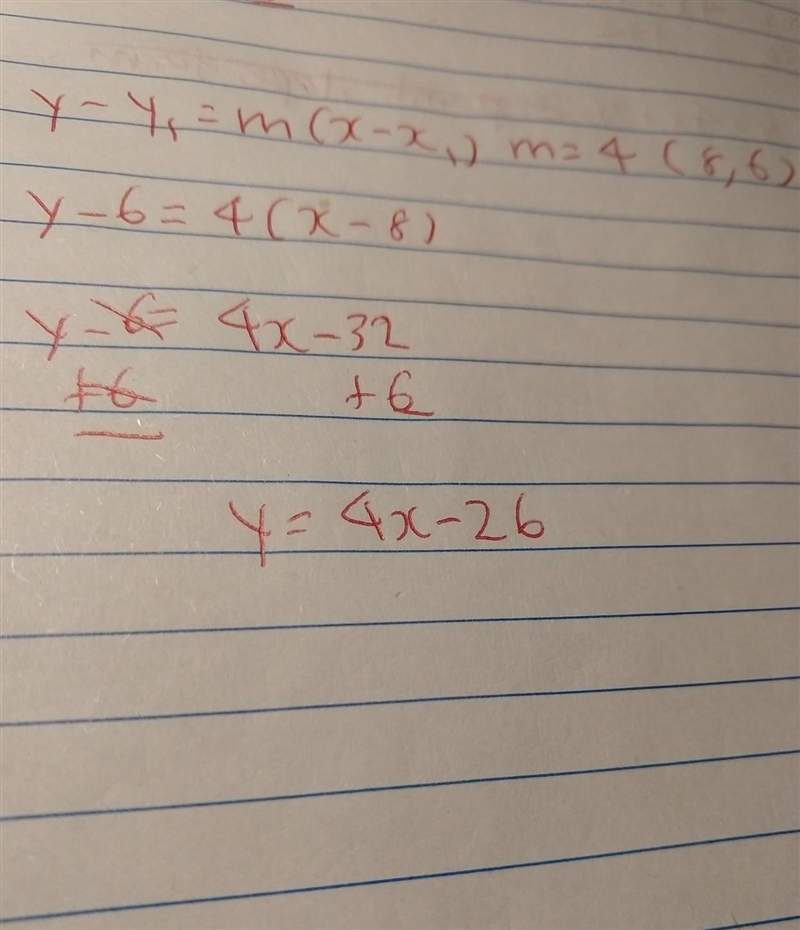 y - y₁ = m(x - x₁) m = 4 (8,6)
y - 6 = 4(x - 8)
y - 6 = 4x - 32
+6 +6
y = 4x - 26